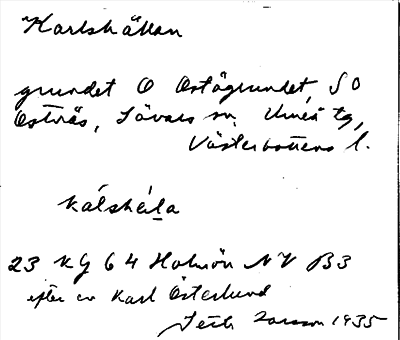 Karlshällan
grundet O Ostögrundet, SO
Ostnäs, Sävars sn, Umeå tg,
Västerbottens l.
kálshéla
23 KG 64 Holmön NV B3
efter en Karl Österlund
Larsson 1935